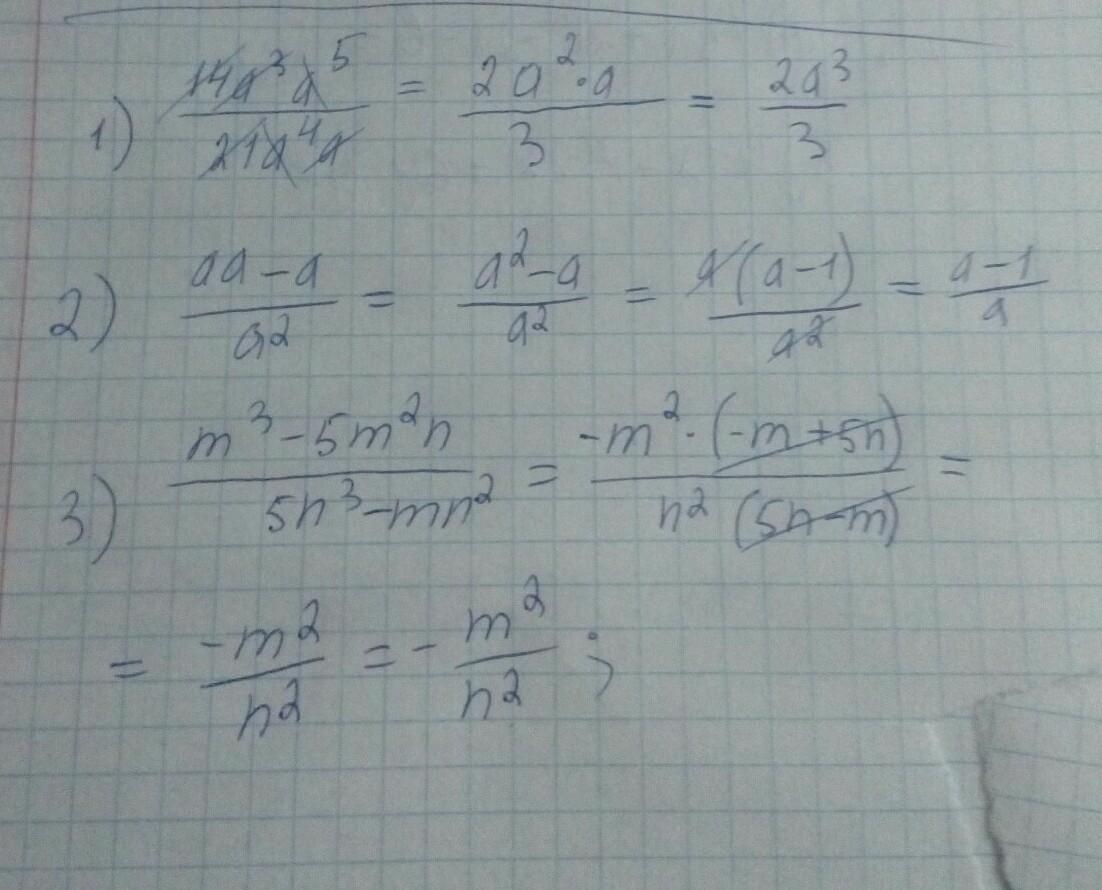 1) 14a³a⁵/21a⁴a = 2a²·a/3 = 2a³/3
2) aa-a/a² = a²-a/a² = a(a-1)/a² = a-1/a
3) m³-5m²n/5n³-mn² = -m²·(-m+5n)/n²(5n-m) =
= -m²/n² = -m²/n² ;